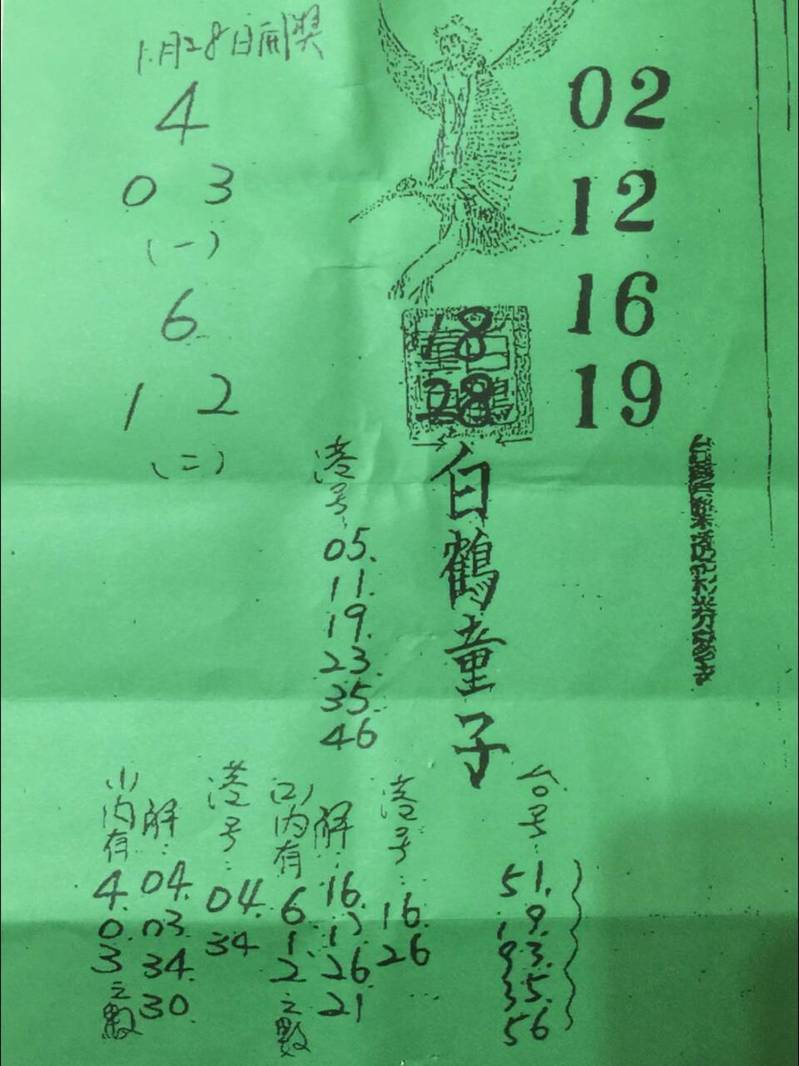 1月28日開獎
4
0 3
(一)
6
1 2
(二)
02
12
16
19
18
28
白鶴童子
港号:
05.
11.
19.
23.
35.
46
(1)内有
4.
0.
3
之數
解:
04.
03.
34
30
港号:
04.
34
(2)内有
6.
1.
2
之數
解:
16.
12.
26
21
港号:
16.
26
台号:
51.
19.
93.
35.
56